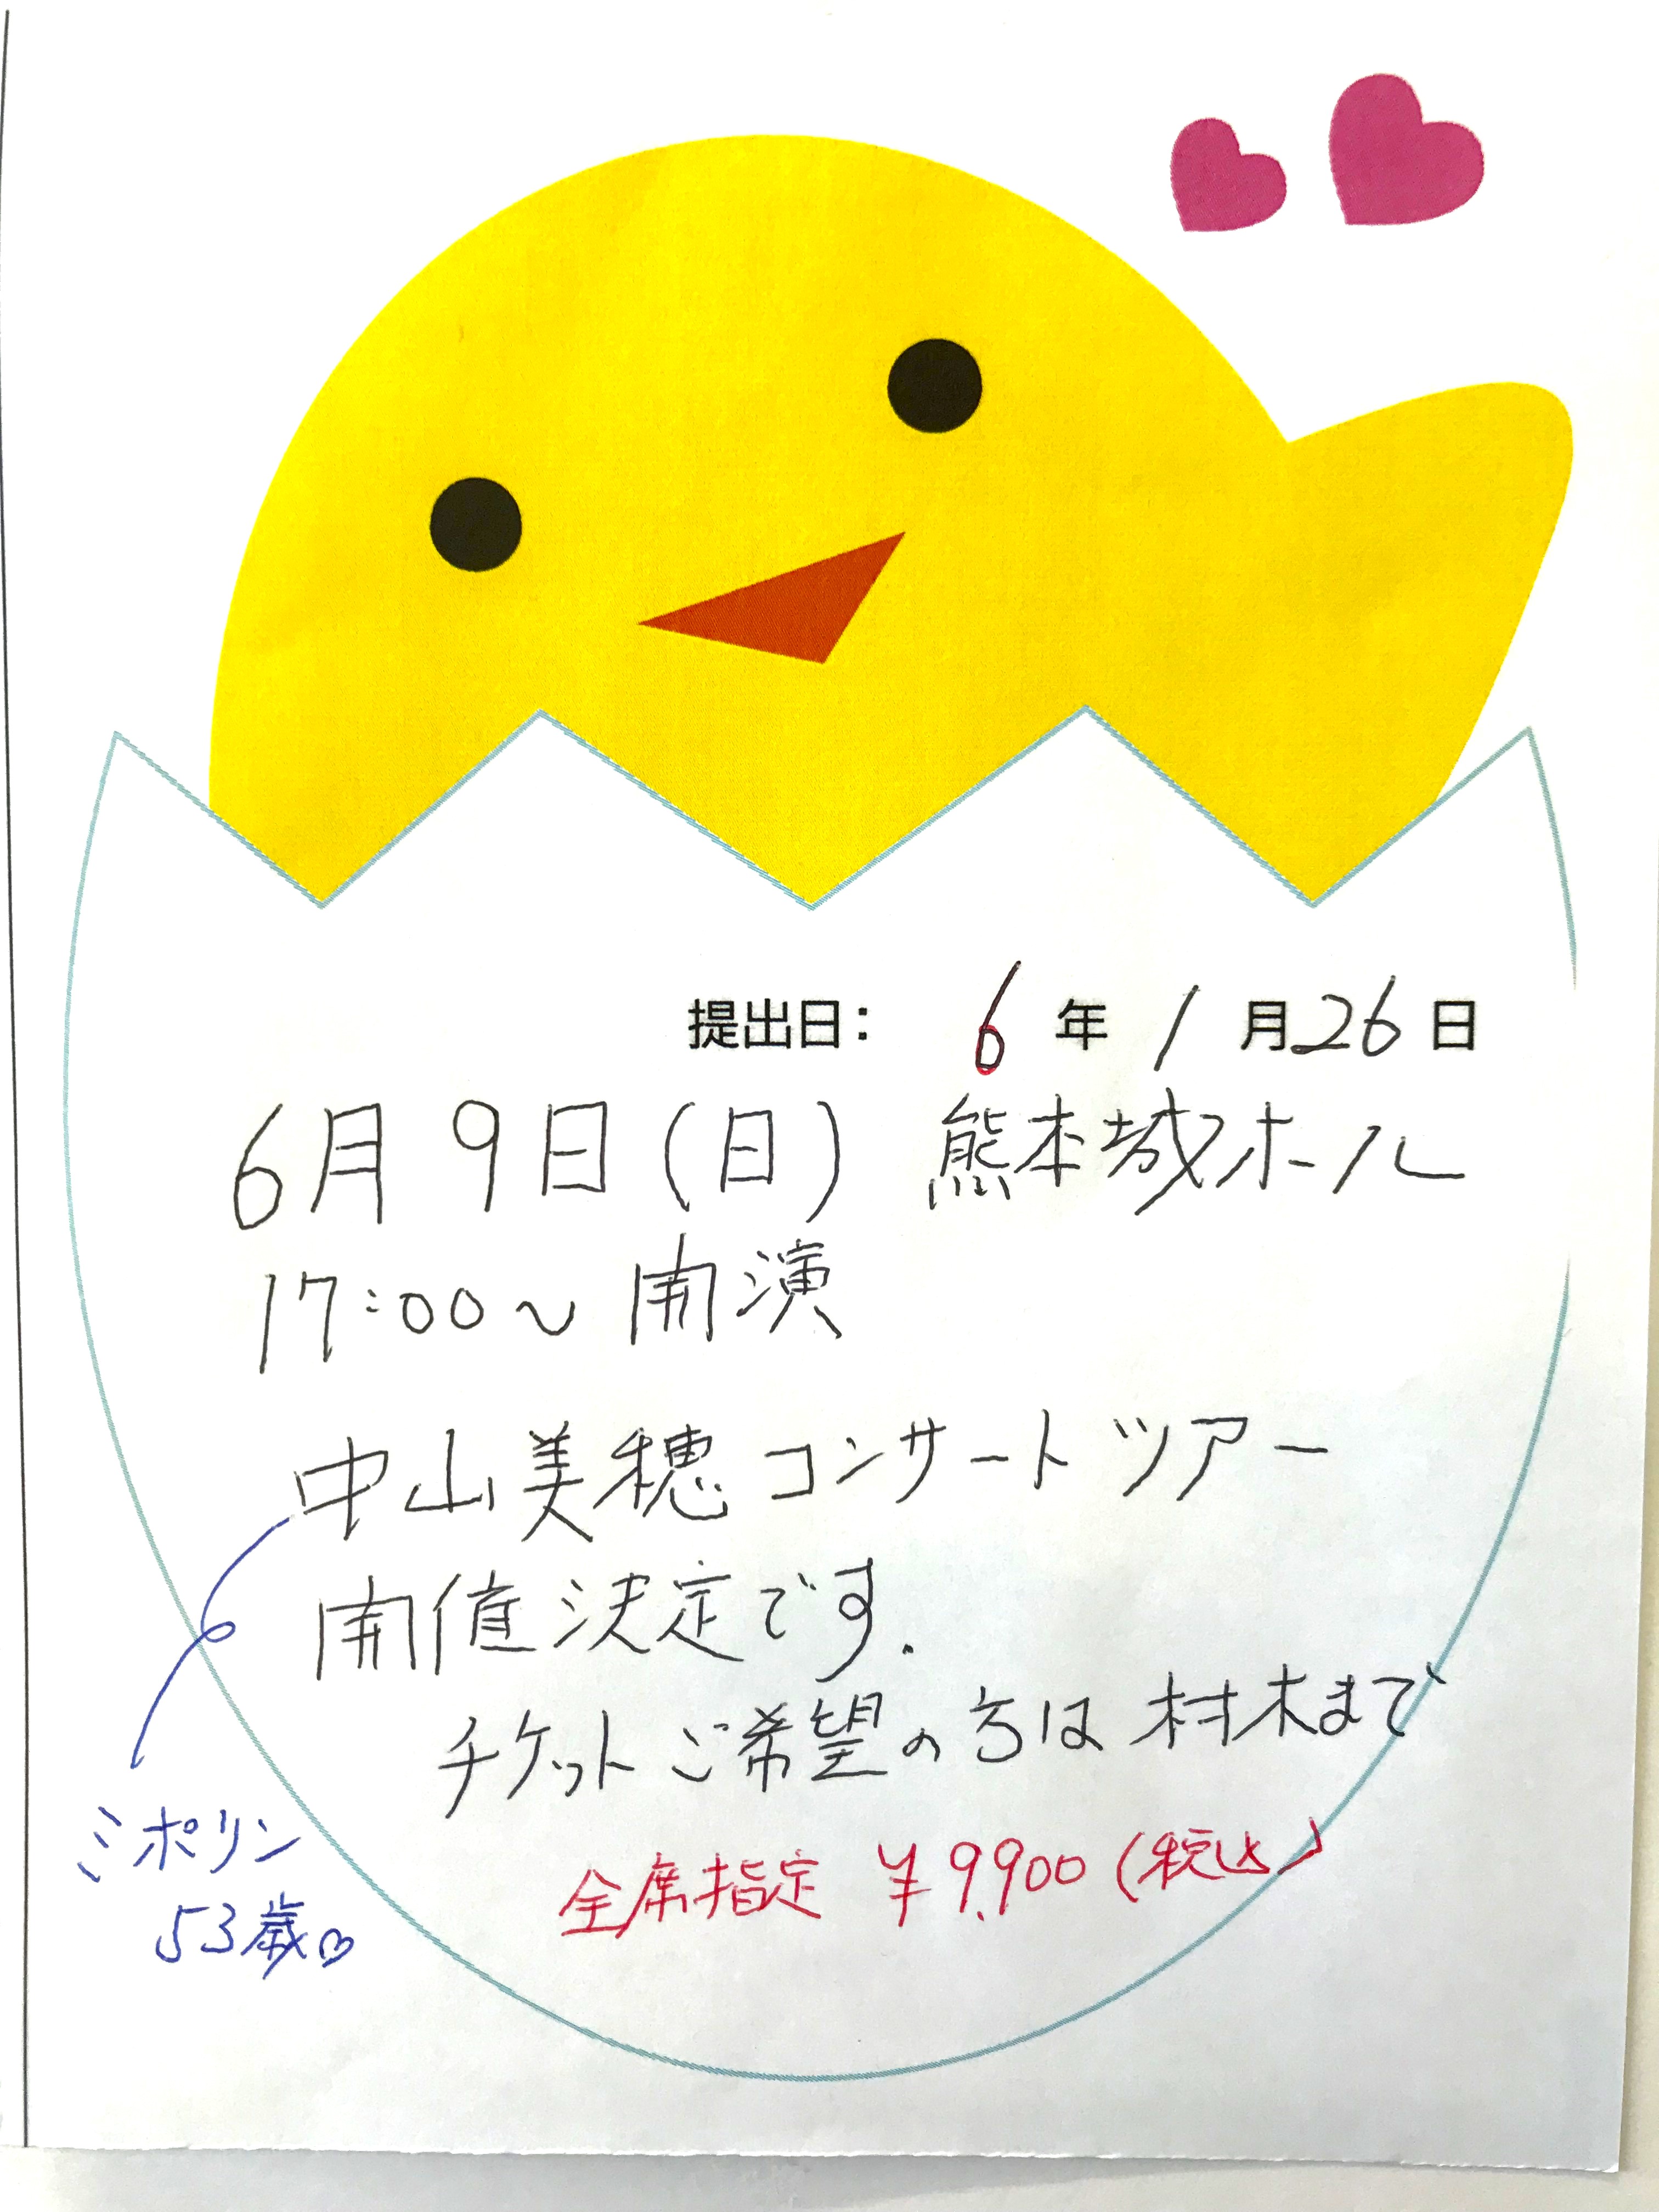 提出日： 6 年 1 月 26 日
6月9日(日) 熊本城ホール
17:00～ 開演
中山美穂コンサートツアー
開催決定です.
チケットご希望の方は村木まで
全席指定 ¥9,900(税込)
ミポリン
53歳♡